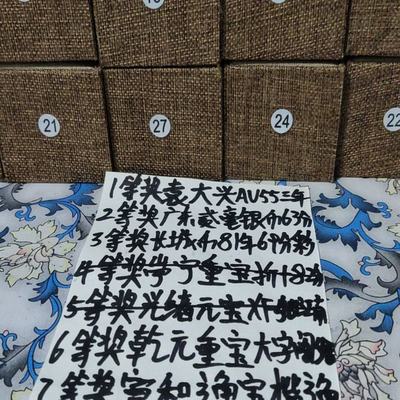 21
27
24
22
1等奖袁大头AU55三年
2等奖广东贰毫银币63分
3等奖长城币81年69分
4等奖崇宁重宝折十82分
5等奖光绪元宝
6等奖乾元重宝大字
7等奖宣和通宝